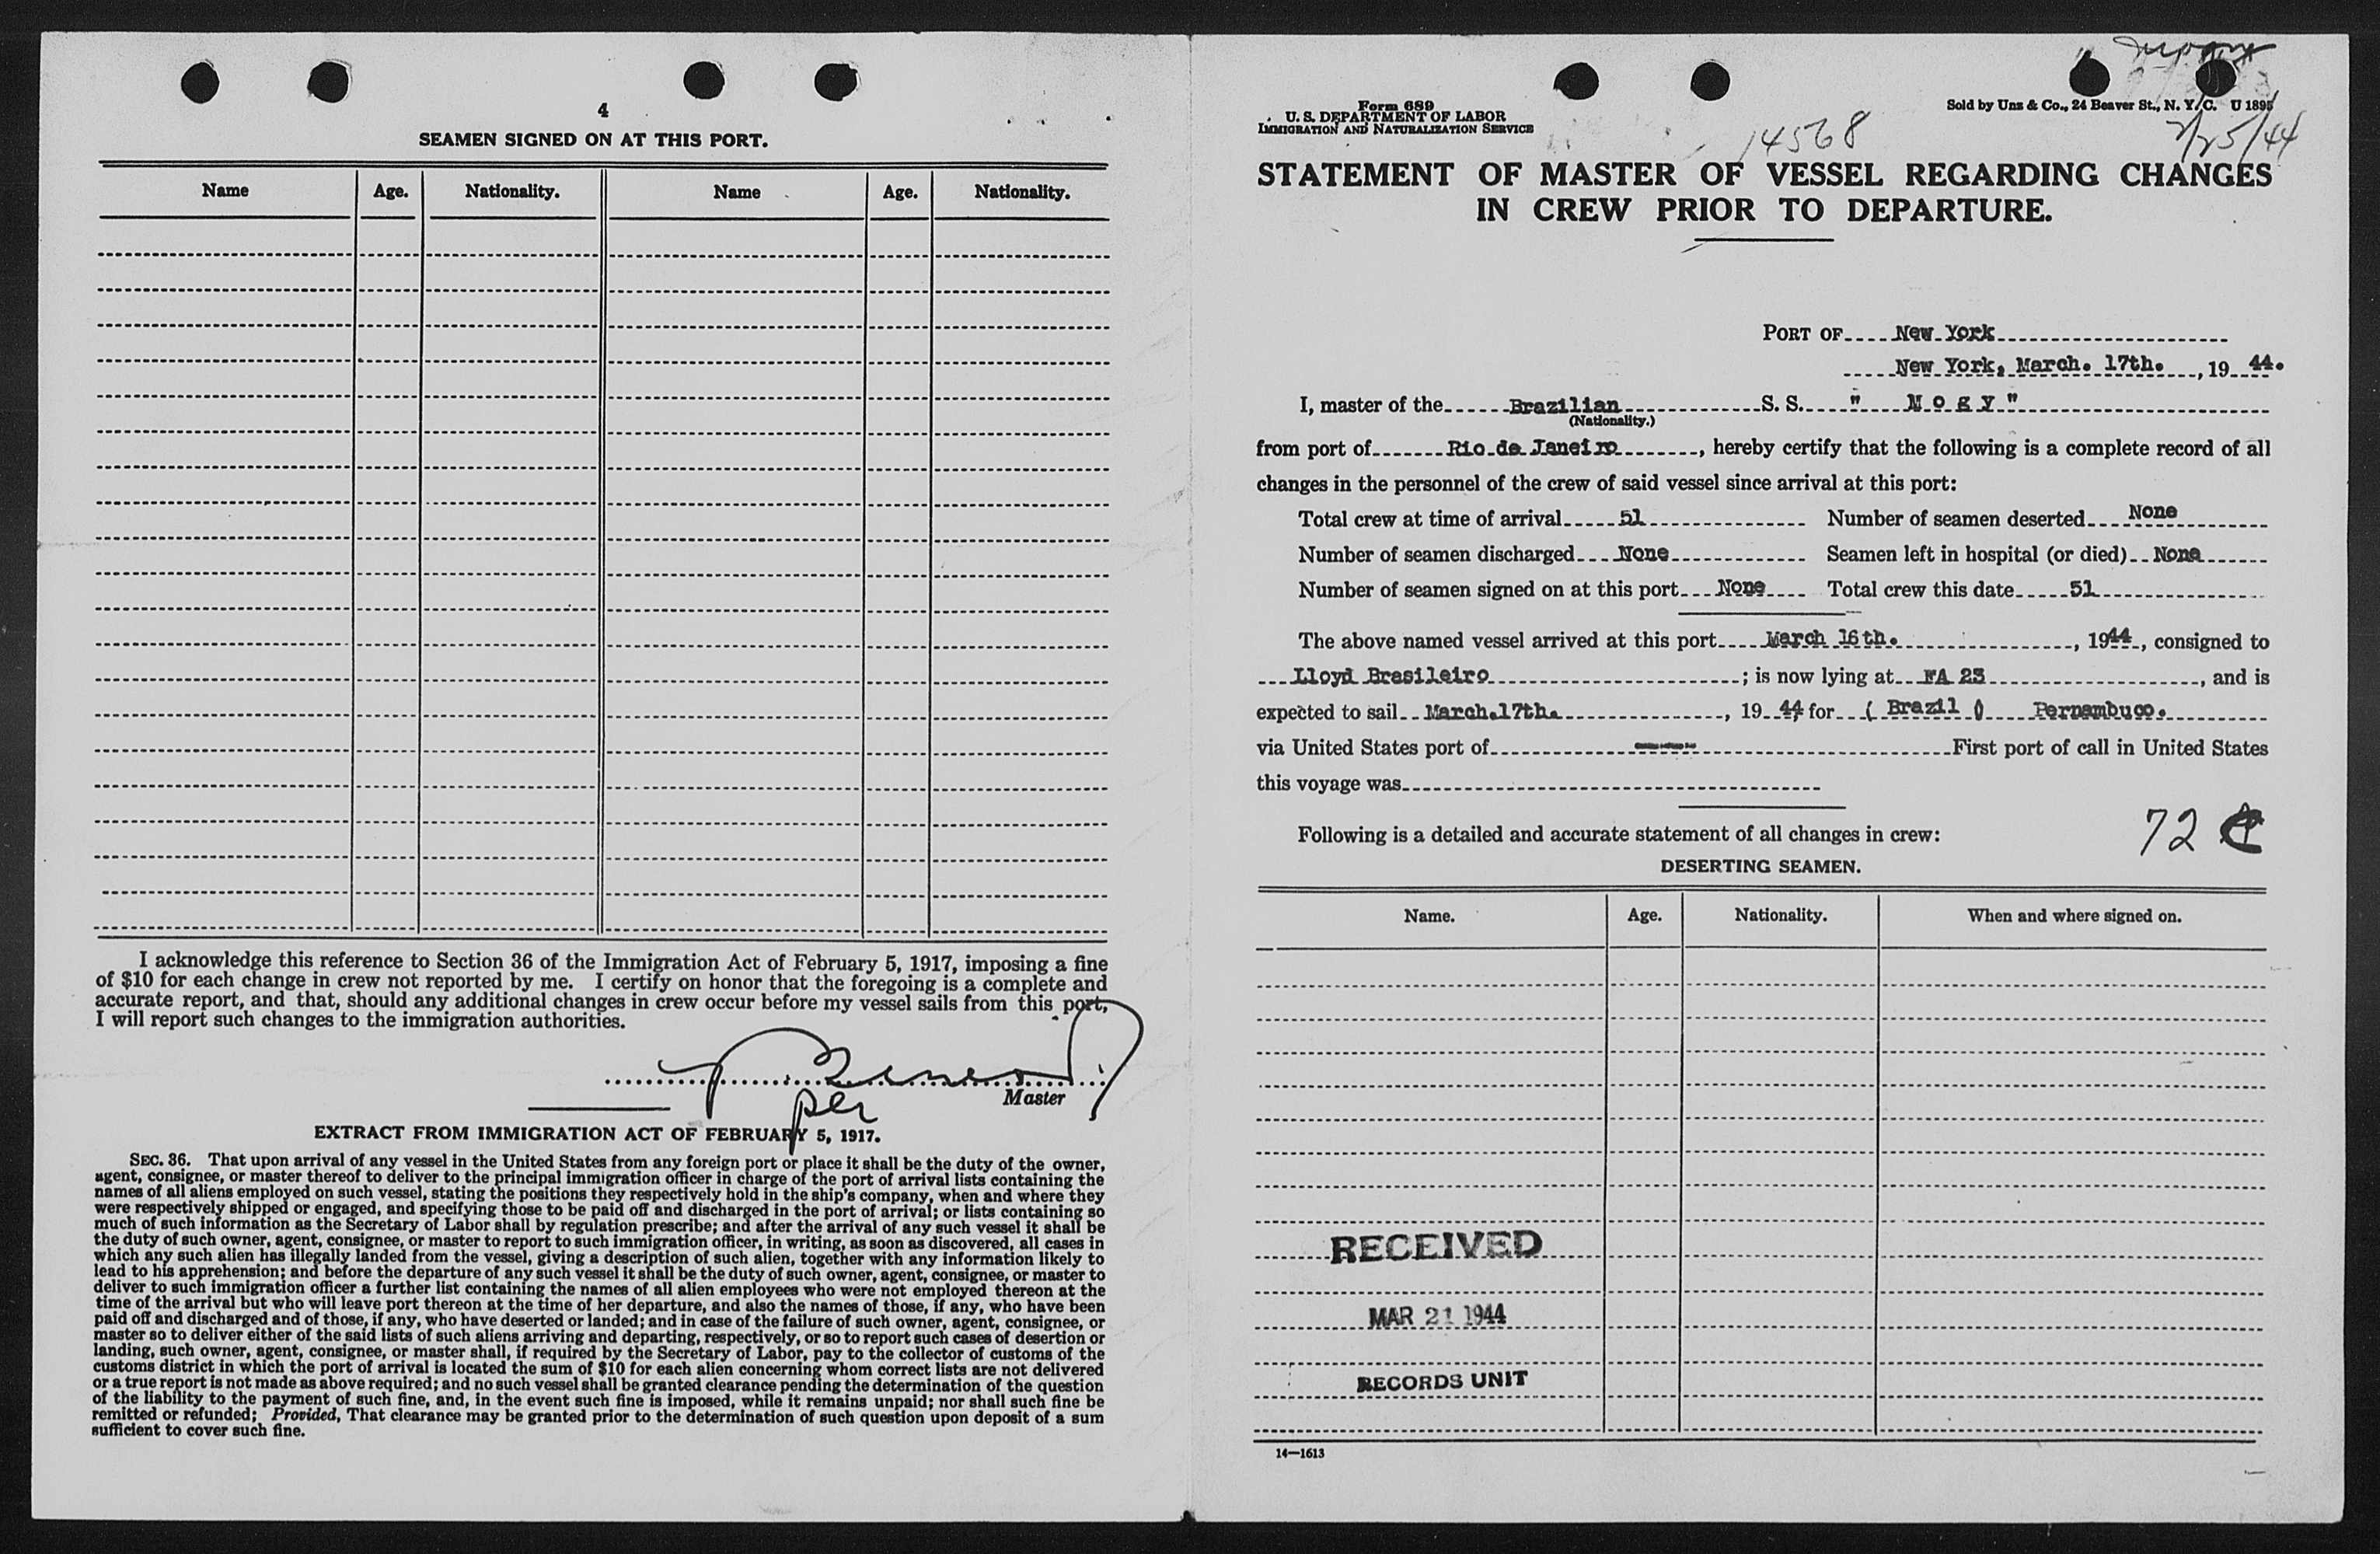 4
SEAMEN SIGNED ON AT THIS PORT.
Name Age. Nationality. Name Age. Nationality.
I acknowledge this reference to Section 36 of the Immigration Act of February 5, 1917, imposing a fine
of $10 for each change in crew not reported by me. I certify on honor that the foregoing is a complete and
accurate report, and that, should any additional changes in crew occur before my vessel sails from this port,
I will report such changes to the immigration authorities.
Master
per
EXTRACT FROM IMMIGRATION ACT OF FEBRUARY 5, 1917.
SEC. 36. That upon arrival of any vessel in the United States from any foreign port or place it shall be the duty of the owner,
agent, consignee, or master thereof to deliver to the principal immigration officer in charge of the port of arrival lists containing the
names of all aliens employed on such vessel, stating the positions they respectively hold in the ship's company, when and where they
were respectively shipped or engaged, and specifying those to be paid off and discharged in the port of arrival; or lists containing so
much of such information as the Secretary of Labor shall by regulation prescribe; and after the arrival of any such vessel it shall be
the duty of such owner, agent, consignee, or master to report to such immigration officer, in writing, as soon as discovered, all cases in
which any such alien has illegally landed from the vessel, giving a description of such alien, together with any information likely to
lead to his apprehension; and before the departure of any such vessel it shall be the duty of such owner, agent, consignee, or master to
deliver to such immigration officer a further list containing the names of all alien employees who were not employed thereon at the
time of the arrival but who will leave port thereon at the time of her departure, and also the names of those, if any, who have been
paid off and discharged and of those, if any, who have deserted or landed; and in case of the failure of such owner, agent, consignee, or
master so to deliver either of the said lists of such aliens arriving and departing, respectively, or so to report such cases of desertion or
landing, such owner, agent, consignee, or master shall, if required by the Secretary of Labor, pay to the collector of customs of the
customs district in which the port of arrival is located the sum of $10 for each alien concerning whom correct lists are not delivered
or a true report is not made as above required; and no such vessel shall be granted clearance pending the determination of the question
of the liability to the payment of such fine, and, in the event such fine is imposed, while it remains unpaid; nor shall such fine be
remitted or refunded; Provided, That clearance may be granted prior to the determination of such question upon deposit of a sum
sufficient to cover such fine.
Form 689
U. S. DEPARTMENT OF LABOR
IMMIGRATION AND NATURALIZATION SERVICE
Sold by Unz & Co., 24 Beaver St., N. Y. C. U 1895
14568
2/25/44
STATEMENT OF MASTER OF VESSEL REGARDING CHANGES
IN CREW PRIOR TO DEPARTURE.
PORT OF New York
New York, March. 17th. , 19 44.
I, master of the Brazilian S. S. " M o g y "
(Nationality.)
from port of Rio de Janeiro , hereby certify that the following is a complete record of all
changes in the personnel of the crew of said vessel since arrival at this port:
Total crew at time of arrival 51 Number of seamen deserted None
Number of seamen discharged None Seamen left in hospital (or died) None
Number of seamen signed on at this port None Total crew this date 51
The above named vessel arrived at this port March 16th. , 1944 , consigned to
Lloyd Brasileiro ; is now lying at FA 23 , and is
expected to sail March.17th. , 19 44 for ( Brazil ) Pernambuco.
via United States port of ---- First port of call in United States
this voyage was
Following is a detailed and accurate statement of all changes in crew:
72
DESERTING SEAMEN.
Name. Age. Nationality. When and where signed on.
RECEIVED
MAR 21 1944
RECORDS UNIT
14—1613